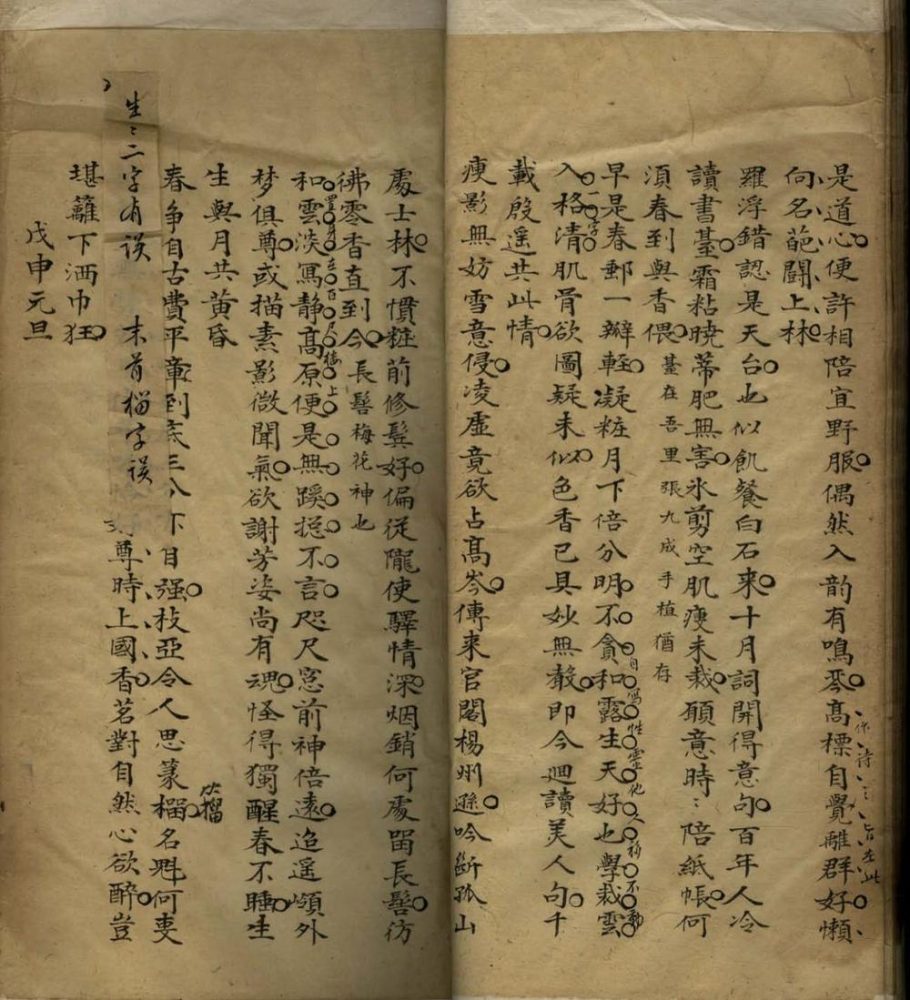 是道心便許相陪宜野服偶然入韵有鳴琴高標自覺離群好懶
向名葩闘上林
羅浮錯認是天台也似飢餐白石來十月詞開得意句百年人冷
讀書䑓霜粘曉蒂肥無害氷剪空肌瘦未栽願意時〻陪紙帳何
湏春到與香偎䑓在吾里張九成手植猶存
早是春郵一瓣輕凝粧月下倍分明不貪和露生天好也學栽雲
入格清肌骨欲圖疑未似色香已具妙無聲即今迴讀美人句千
載殷遥共此情
瘦影無妨雪意侵凌虛竟欲占高岑傳來官閣楊州遜吟斷孤山
處士林不慣粧前修鬂好偏從隴使驛情深烟銷何處畱長髻彷
彿零香直到今長髻梅花神也
和雲淡寫静高原便是無蹊摠不言咫尺窓前神倍遠逍遥頌外
梦俱尊或描素影微聞氣欲謝芳姿尚有魂怪得獨醒春不睡生
生與月共黄昏
春爭自古費平章到底三分下目强枝亞令人思篆榴名魁何㕜
尊時上國香茗對自然心欲醉豈
堪籬下洒巾狂
戊申元旦
生〻二字有误
末首榴字误